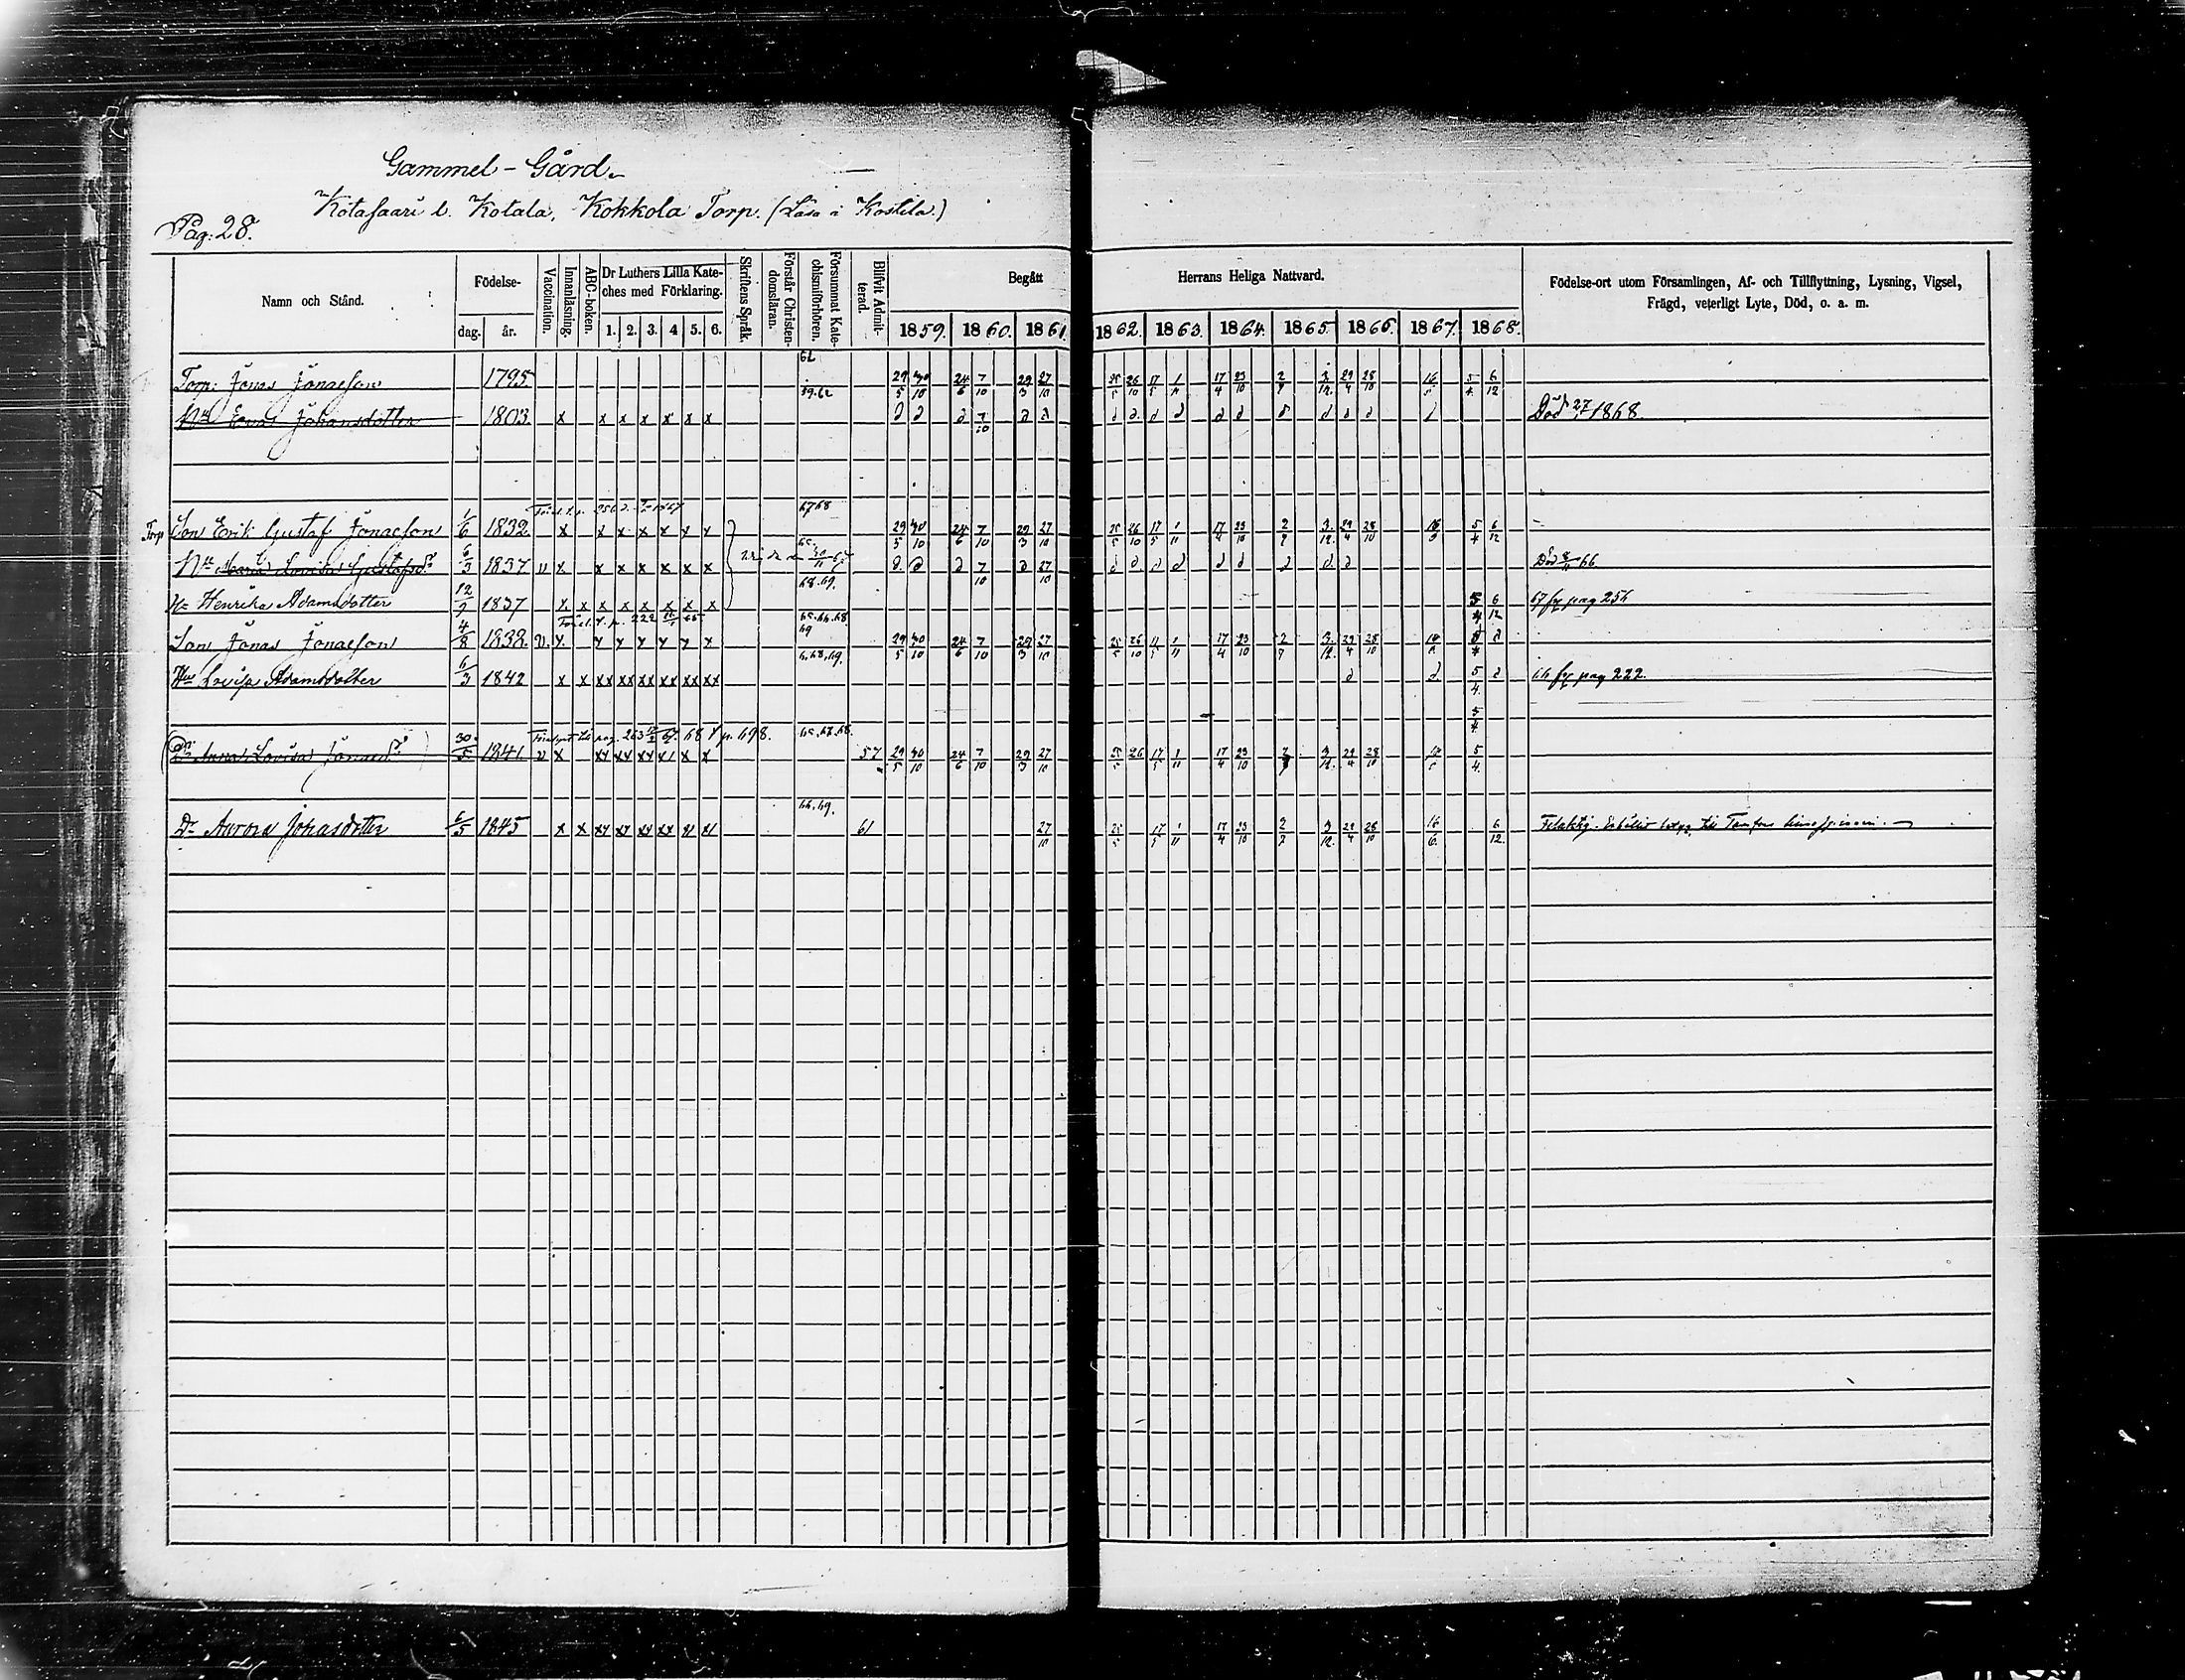 Gammel-Gård.
Kotasaari l. Kotala, Kokkola Torp. (Läsa i Kostila.)
Pag: 28.
Namn och Stånd.
Födelse-
dag. år.
Vaccination.
Innanläsning.
ABC-boken.
Dr Luthers Lilla Kate-
ches med Förklaring.
1. 2. 3. 4 5. 6.
Skriftens Språk.
Förstår Christen-
domsläran.
Försummat Kate-
chismiförhören.
Blifvit Admit-
terad.
Begått Herrans Heliga Nattvard.
1859. 1860. 1861. 1862. 1863. 1864. 1865. 1866. 1867. 1868.
Födelse-ort utom Församlingen, Af- och Tillflyttning, Lysning, Vigsel,
Frägd, veterligt Lyte, Död, o. a. m.
62
Torp: Jonas Jonasson 1795 59.62 29/5 30/10 24/6 7/10 29/3 27/10 25/5 26/10 17/5 1/11 17/4 23/10 2/7 3/12. 29/4 28/10 5/4 6/12
Hu Eva Johansdotter 1803 x x x x x x x Död 27 1868.
67 68
Torp Son Erik Gustaf Jonasson 1/6 1832 x x x x x x 29/5 30/10 24/6 7/10 29/3 27/10 25/5 26/10 17/5 1/11 17/4 23/10 2/7 3/12. 29/4 28/10 5/4 6/12
Hu Maria Lovisa Gustafsdr 6/3 1837 v x x x x x x x 7/10 27/10 Död 66.
68.69.
Hu Henrika Adamsdotter 12/2 1837 x x x x x x x x 5/4 6/12 67 fr pag 254
p. 222 65.66.68.
69
Son Jonas Jonasson 4/8 1838. v. x 29/5 30/10 24/6 7/10 29/3 27/10 25/5 26/10 1/11 17/4 23/10 2/7 3/12. 29/4 28/10
68.69.
Hu Lovisa Adamsdotter 6/3 1842 x x xx xx xx xx xx xx 5/4. 66 fr pag 222.
5/4
pag. 263 68 p. 698. 65.67.68.
Dr Anna Lovisa Jonasdr 30/5 1841. v x 57 29/5 30/10 24/6 7/10 29/3 27/10 25/5 26 17/5 1/11 17/4 23/10 3/12. 29/4 28/10 5/4.
66.69.
Dr Aurora Jonasdotter 6/5 1845 x x 61 27/10 25/5 17/5 1/11 17/4 23/10 2/7 3/12. 29/4 28/10 6/12.